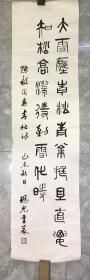 大雪壓青松青松挺且直要
知松高潔待到雪化時
陳毅同志青松詩
己未秋日